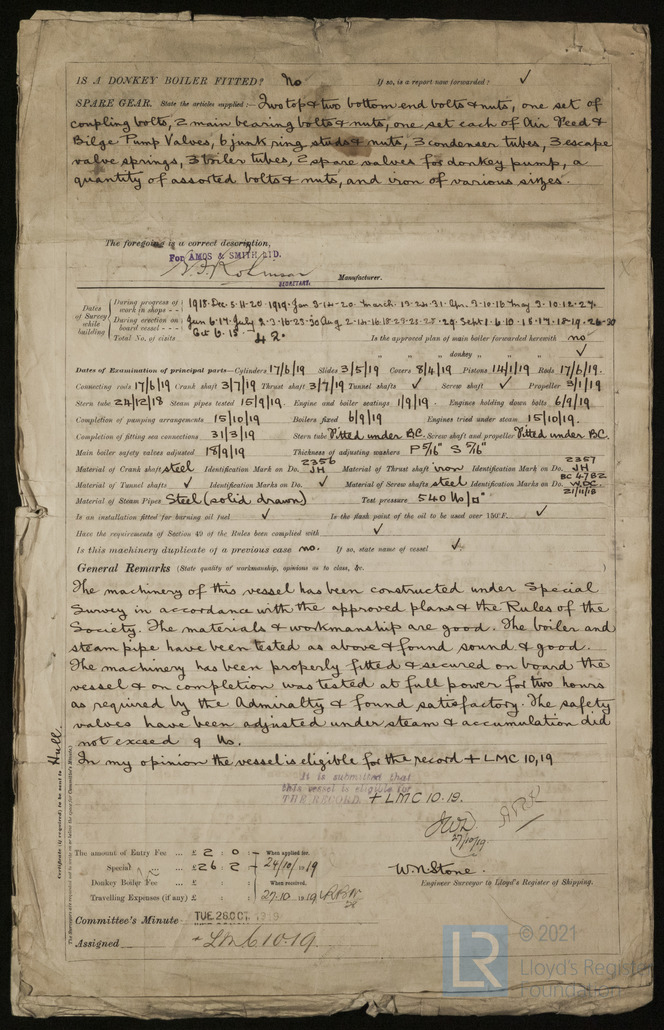 IS A DONKEY BOILER FITTED? No If so, is a report now forwarded? ✓
SPARE GEAR. State the articles supplied:— Two top & two bottom end bolts & nuts, one set of
coupling bolts, 2 main bearing bolts & nuts, one set each of Air Feed &
Bilge Pump Valves, 6 junk ring studs & nuts, 3 condenser tubes, 3 escape
valve springs, 3 boiler tubes, 2 spare valves for donkey pump, a
quantity of assorted bolts & nuts, and iron of various sizes.
The foregoing is a correct description,
For AMOS & SMITH LTD.
Robinson
SECRETARY.
Manufacturer.
Dates of Survey while building
During progress of work in shops - - 1918. Dec. 5. 11. 20. 1919. Jan 3. 14. 20. March. 19. 24. 31. Apr. 3. 10. 16 May 9. 10. 12. 27.
During erection on board vessel - - - Jun 6. 17. July 2. 3. 16. 23. 30 Aug 2. 14. 16. 18. 27. 23. 28. 29. Sept 1. 6. 10. 15. 17. 18. 19. 26. 30
Oct 6. 15.
Total No. of visits 42. Is the approved plan of main boiler forwarded herewith no
" " " donkey " " " ✓
Dates of Examination of principal parts—Cylinders 17/6/19 Slides 3/5/19 Covers 8/4/19 Pistons 14/1/19 Rods 17/6/19.
Connecting rods 17/6/19 Crank shaft 3/7/19 Thrust shaft 3/7/19 Tunnel shafts ✓ Screw shaft ✓ Propeller 3/1/19
Stern tube 24/12/18 Steam pipes tested 15/9/19. Engine and boiler seatings 1/9/19. Engines holding down bolts 6/9/19
Completion of pumping arrangements 15/10/19 Boilers fixed 6/9/19 Engines tried under steam 15/10/19.
Completion of fitting sea connections 31/3/19 Stern tube Fitted under BC. Screw shaft and propeller Fitted under BC.
Main boiler safety valves adjusted 18/9/19 Thickness of adjusting washers P 5/16" S 5/16"
Material of Crank shaft steel Identification Mark on Do. 2356 JH Material of Thrust shaft iron Identification Mark on Do. 2357 JH
Material of Tunnel shafts ✓ Identification Marks on Do. ✓ Material of Screw shafts steel Identification Marks on Do. BC 4782 W.O.C. 21/11/18
Material of Steam Pipes Steel (solid drawn) Test pressure 540 lbs/□"
Is an installation fitted for burning oil fuel ✓ Is the flash point of the oil to be used over 150°F. ✓
Have the requirements of Section 49 of the Rules been complied with ✓
Is this machinery duplicate of a previous case no. If so, state name of vessel ✓
General Remarks (State quality of workmanship, opinions as to class, &c. )
The machinery of this vessel has been constructed under Special
Survey in accordance with the approved plans & the Rules of the
Society. The materials & workmanship are good. The boiler and
steam pipe have been tested as above & found sound & good.
The machinery has been properly fitted & secured on board the
vessel & on completion was tested at full power for two hours
as required by the Admiralty & found satisfactory. The safety
valves have been adjusted under steam & accumulation did
not exceed 9 lbs.
In my opinion the vessel is eligible for the record + LMC 10,19
It is submitted that
this vessel is eligible for
THE RECORD. + LMC 10.19.
27/10/19
Certificate (if required) to be sent to Hull.
The amount of Entry Fee ... £ 2 : 0 : When applied for,
Special ... £ 26 : 2 : 24/10/1919
Donkey Boiler Fee ... £ : : When received,
Travelling Expenses (if any) £ : : 27.10.1919
W. N. Stone.
Engineer Surveyor to Lloyd's Register of Shipping.
Committee's Minute TUE. 28 OCT. 1919
Assigned + LMC 10.19
LR © 2021
Lloyd's Register
Foundation